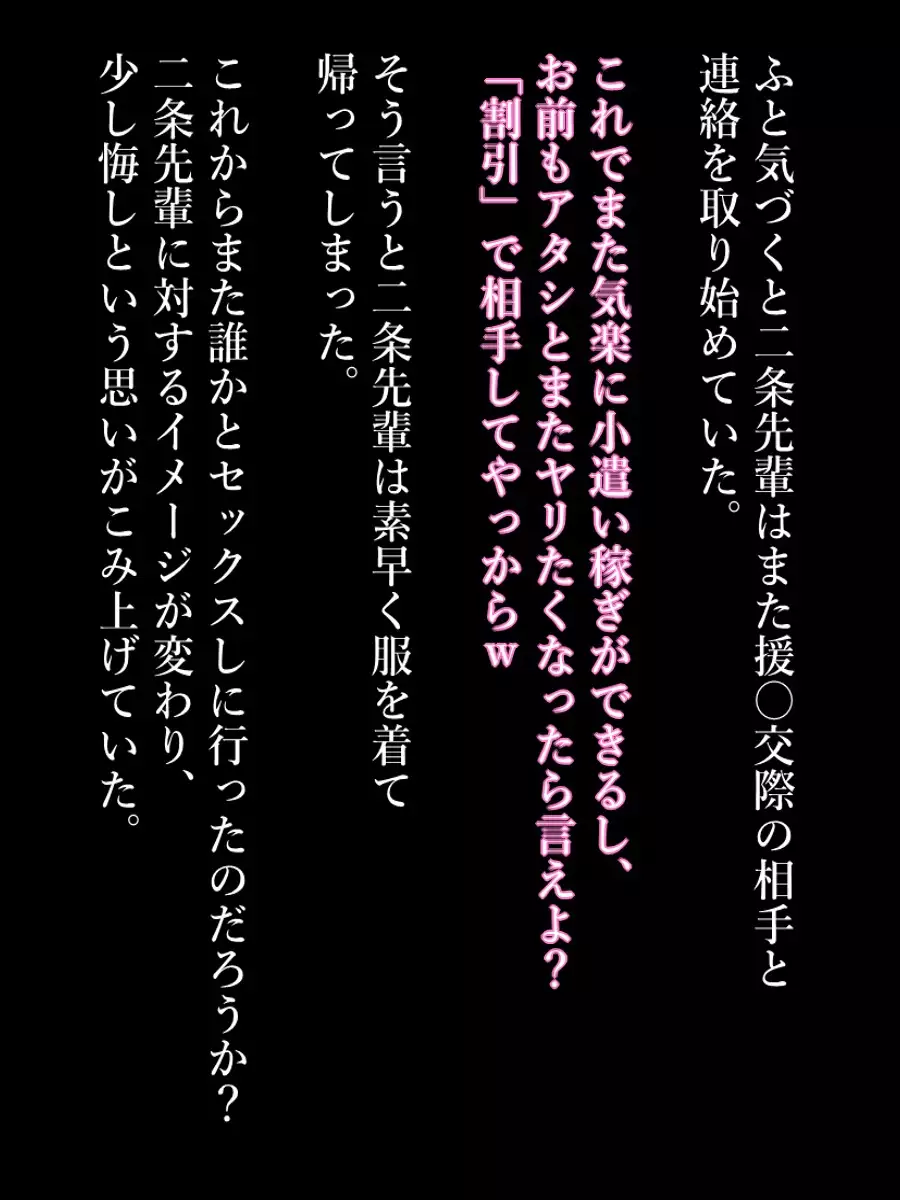 ふと気づくと二条先輩はまた援〇交際の相手と
連絡を取り始めていた。
これでまた気楽に小遣い稼ぎができるし、
お前もアタシとまたヤリたくなったら言えよ？
「割引」で相手してやっからｗ
そう言うと二条先輩は素早く服を着て
帰ってしまった。
これからまた誰かとセックスしに行ったのだろうか？
二条先輩に対するイメージが変わり、
少し悔しという思いがこみ上げていた。